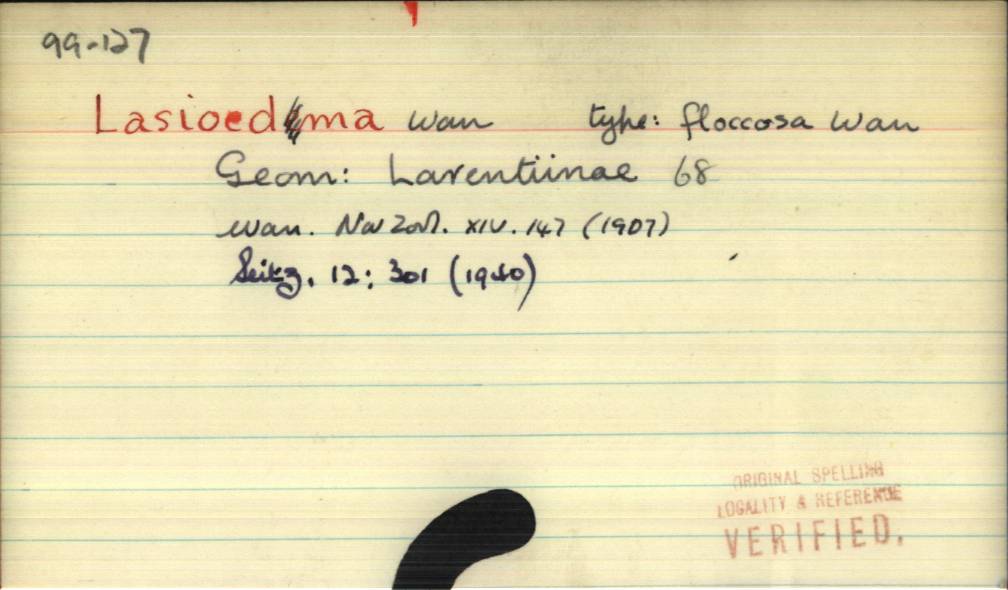 99-127
Lasioedma Wan type: floccosa Wan
Geom: Larentiinae 68
Wan. Nov Zool. XIV. 147 (1907)
Seitz. 12: 301 (1940)
ORIGINAL SPELLING
LOCALITY & REFERENCE
VERIFIED.